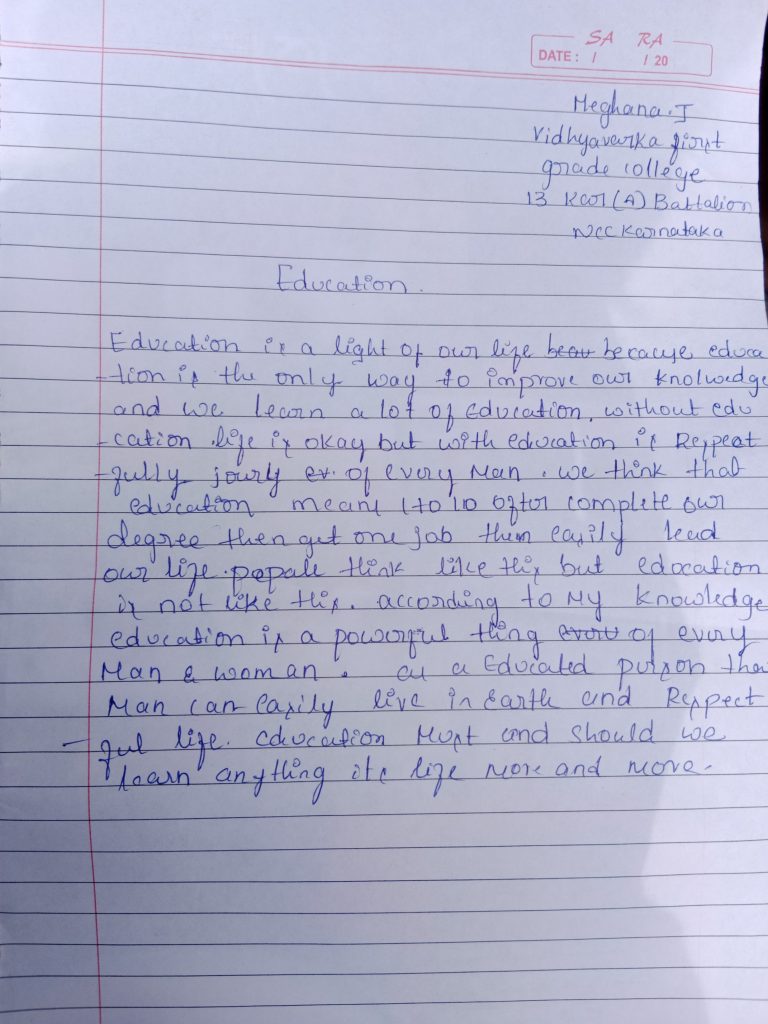 SA RA
DATE: / / 20
Meghana.J
Vidhyavarka first
grade college
13 Kar (A) Battalion
NCC Karnataka
Education.
Education is a light of our life because educa
-tion is the only way to improve our knolwedge
and we learn a lot of education, without edu
-cation life is okay but with education is Respect
-fully jourly of every Man. we think that
education means 1 to 10 after complete our
degree then get one job them easily lead
our life. pepale think like this but edocation
is not like this. according to My knowledge
education is a powerful thing of every
Man & woman. as a Educated purson tha
Man can easily live in Earth and Respect
-ful life. education Must and should we
learn anything its life more and more.